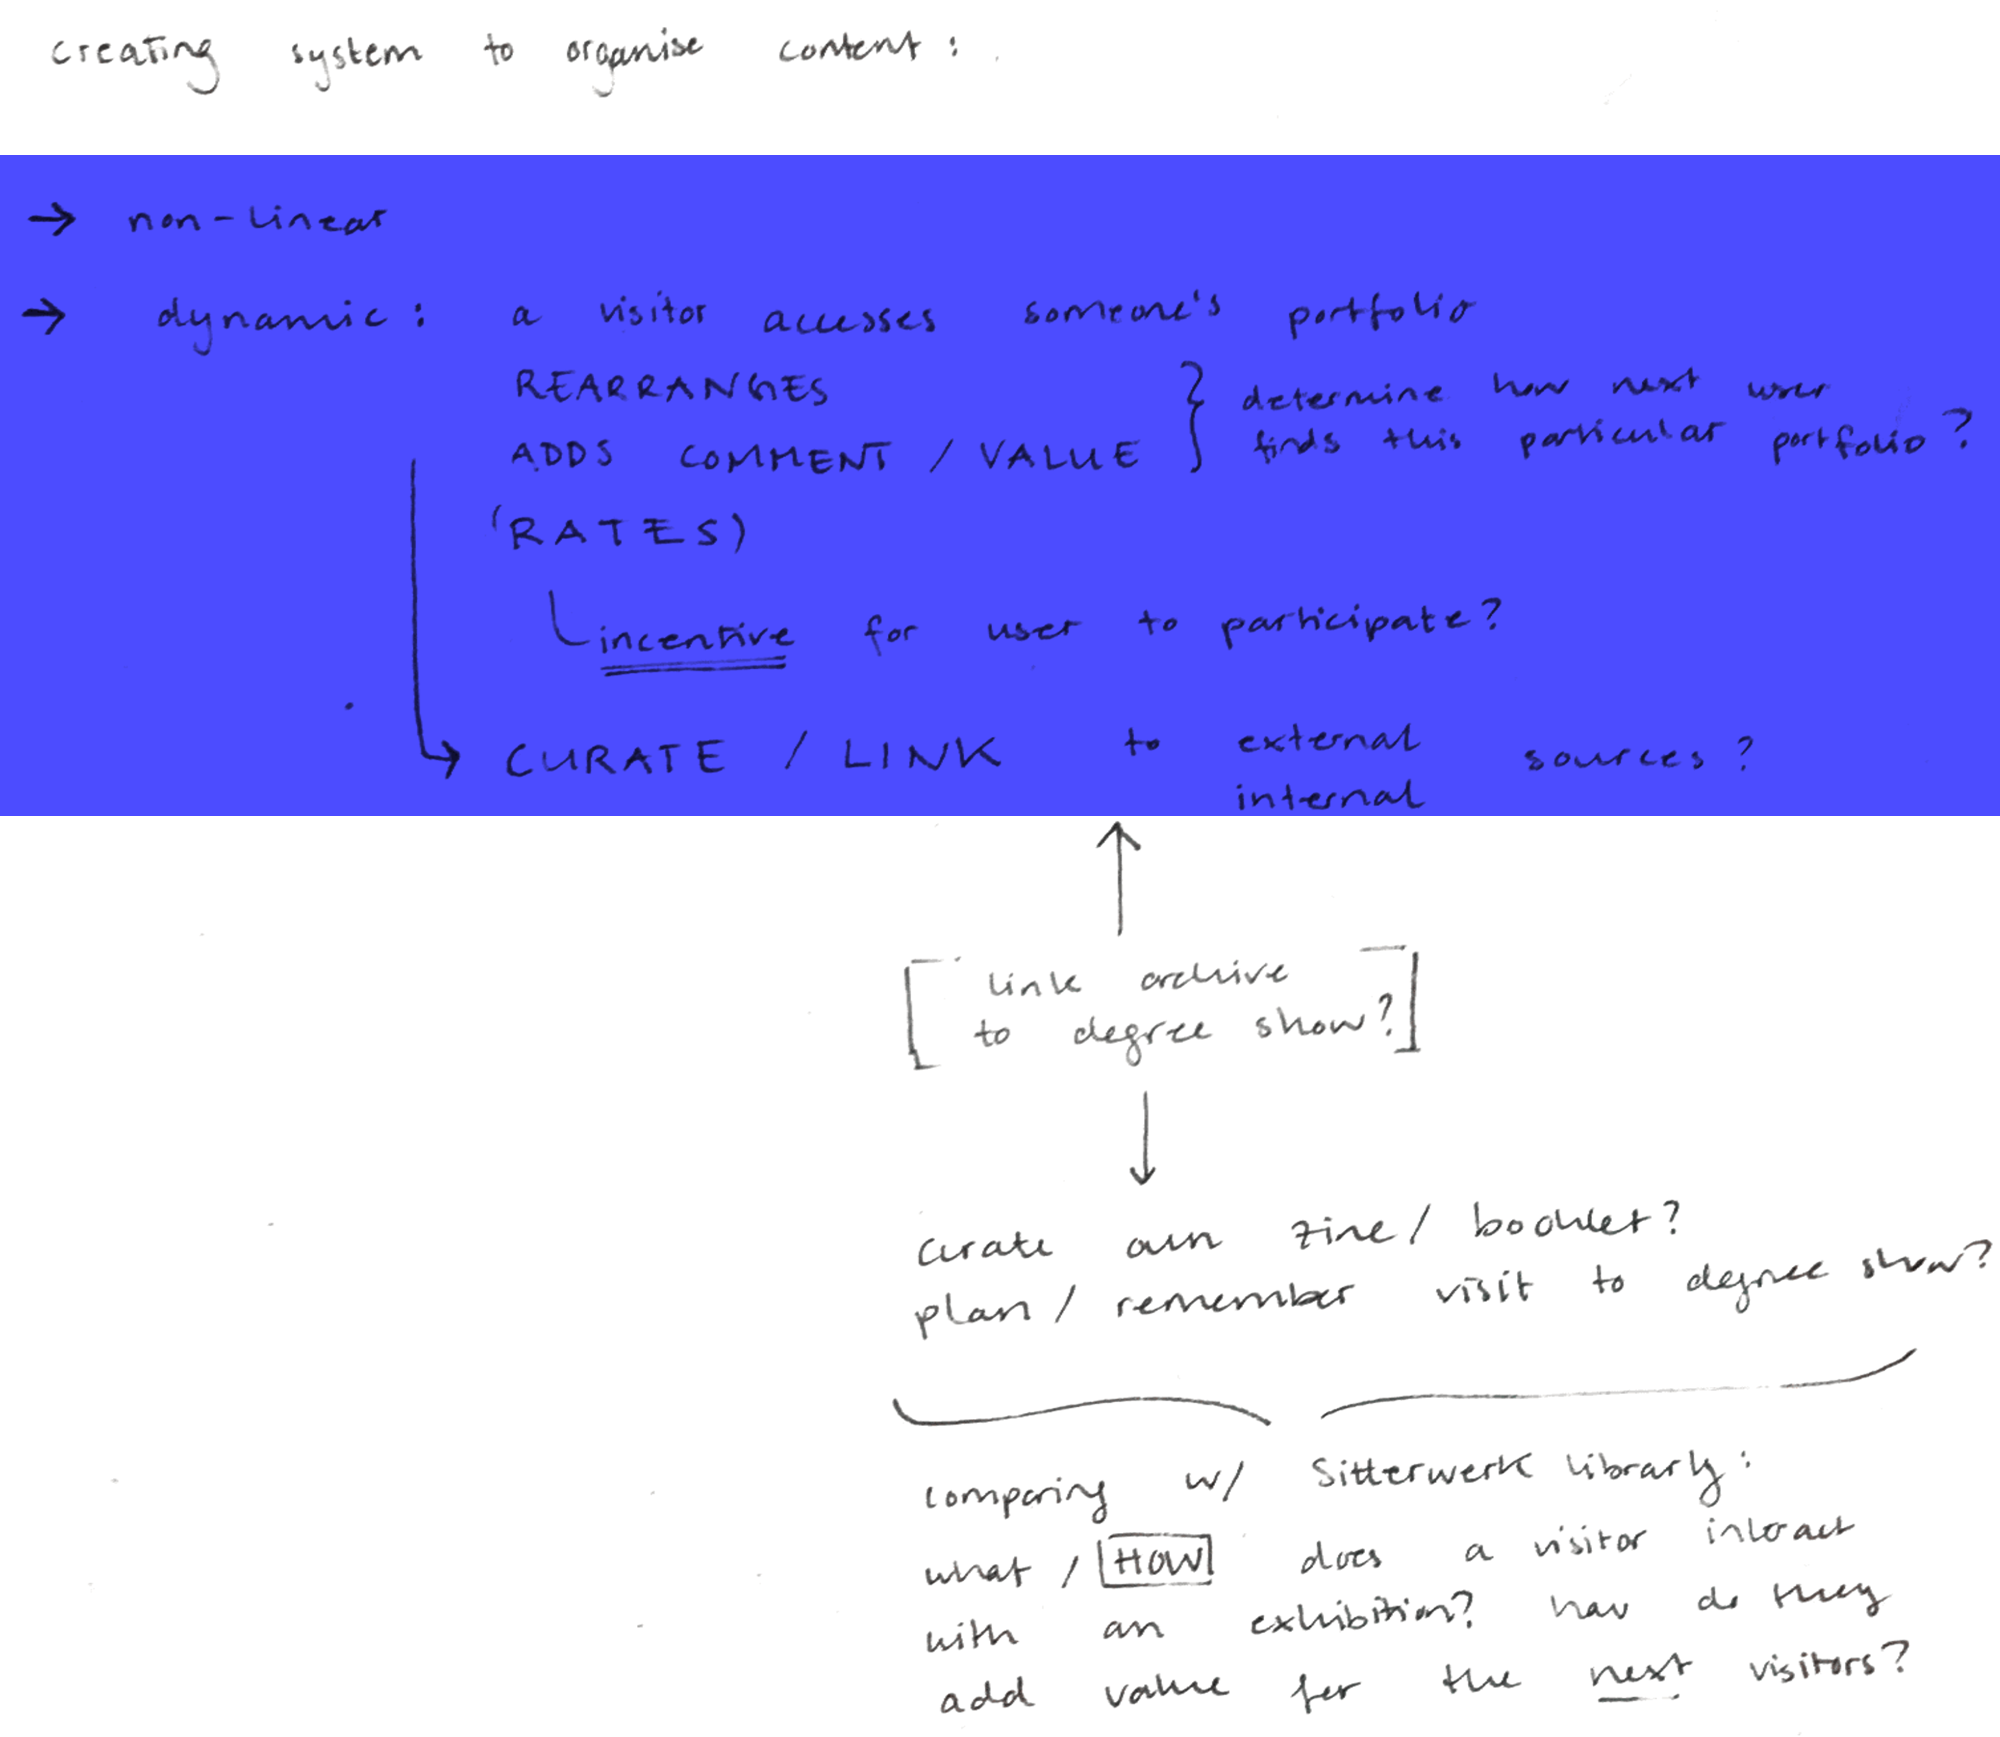 creating system to organise content:
→ non-linear
→ dynamic: a visitor accesses someone's portfolio
REARRANGES
ADDS COMMENT / VALUE } determine how next user
finds this particular portfolio?
(RATES)
incentive for user to participate?
CURATE / LINK to external sources?
internal
[link archive
to degree show?]
curate own zine / booklet?
plan / remember visit to degree show?
comparing w/ Sitterwerk library:
what / HOW does a visitor interact
with an exhibition? how do they
add value for the next visitors?